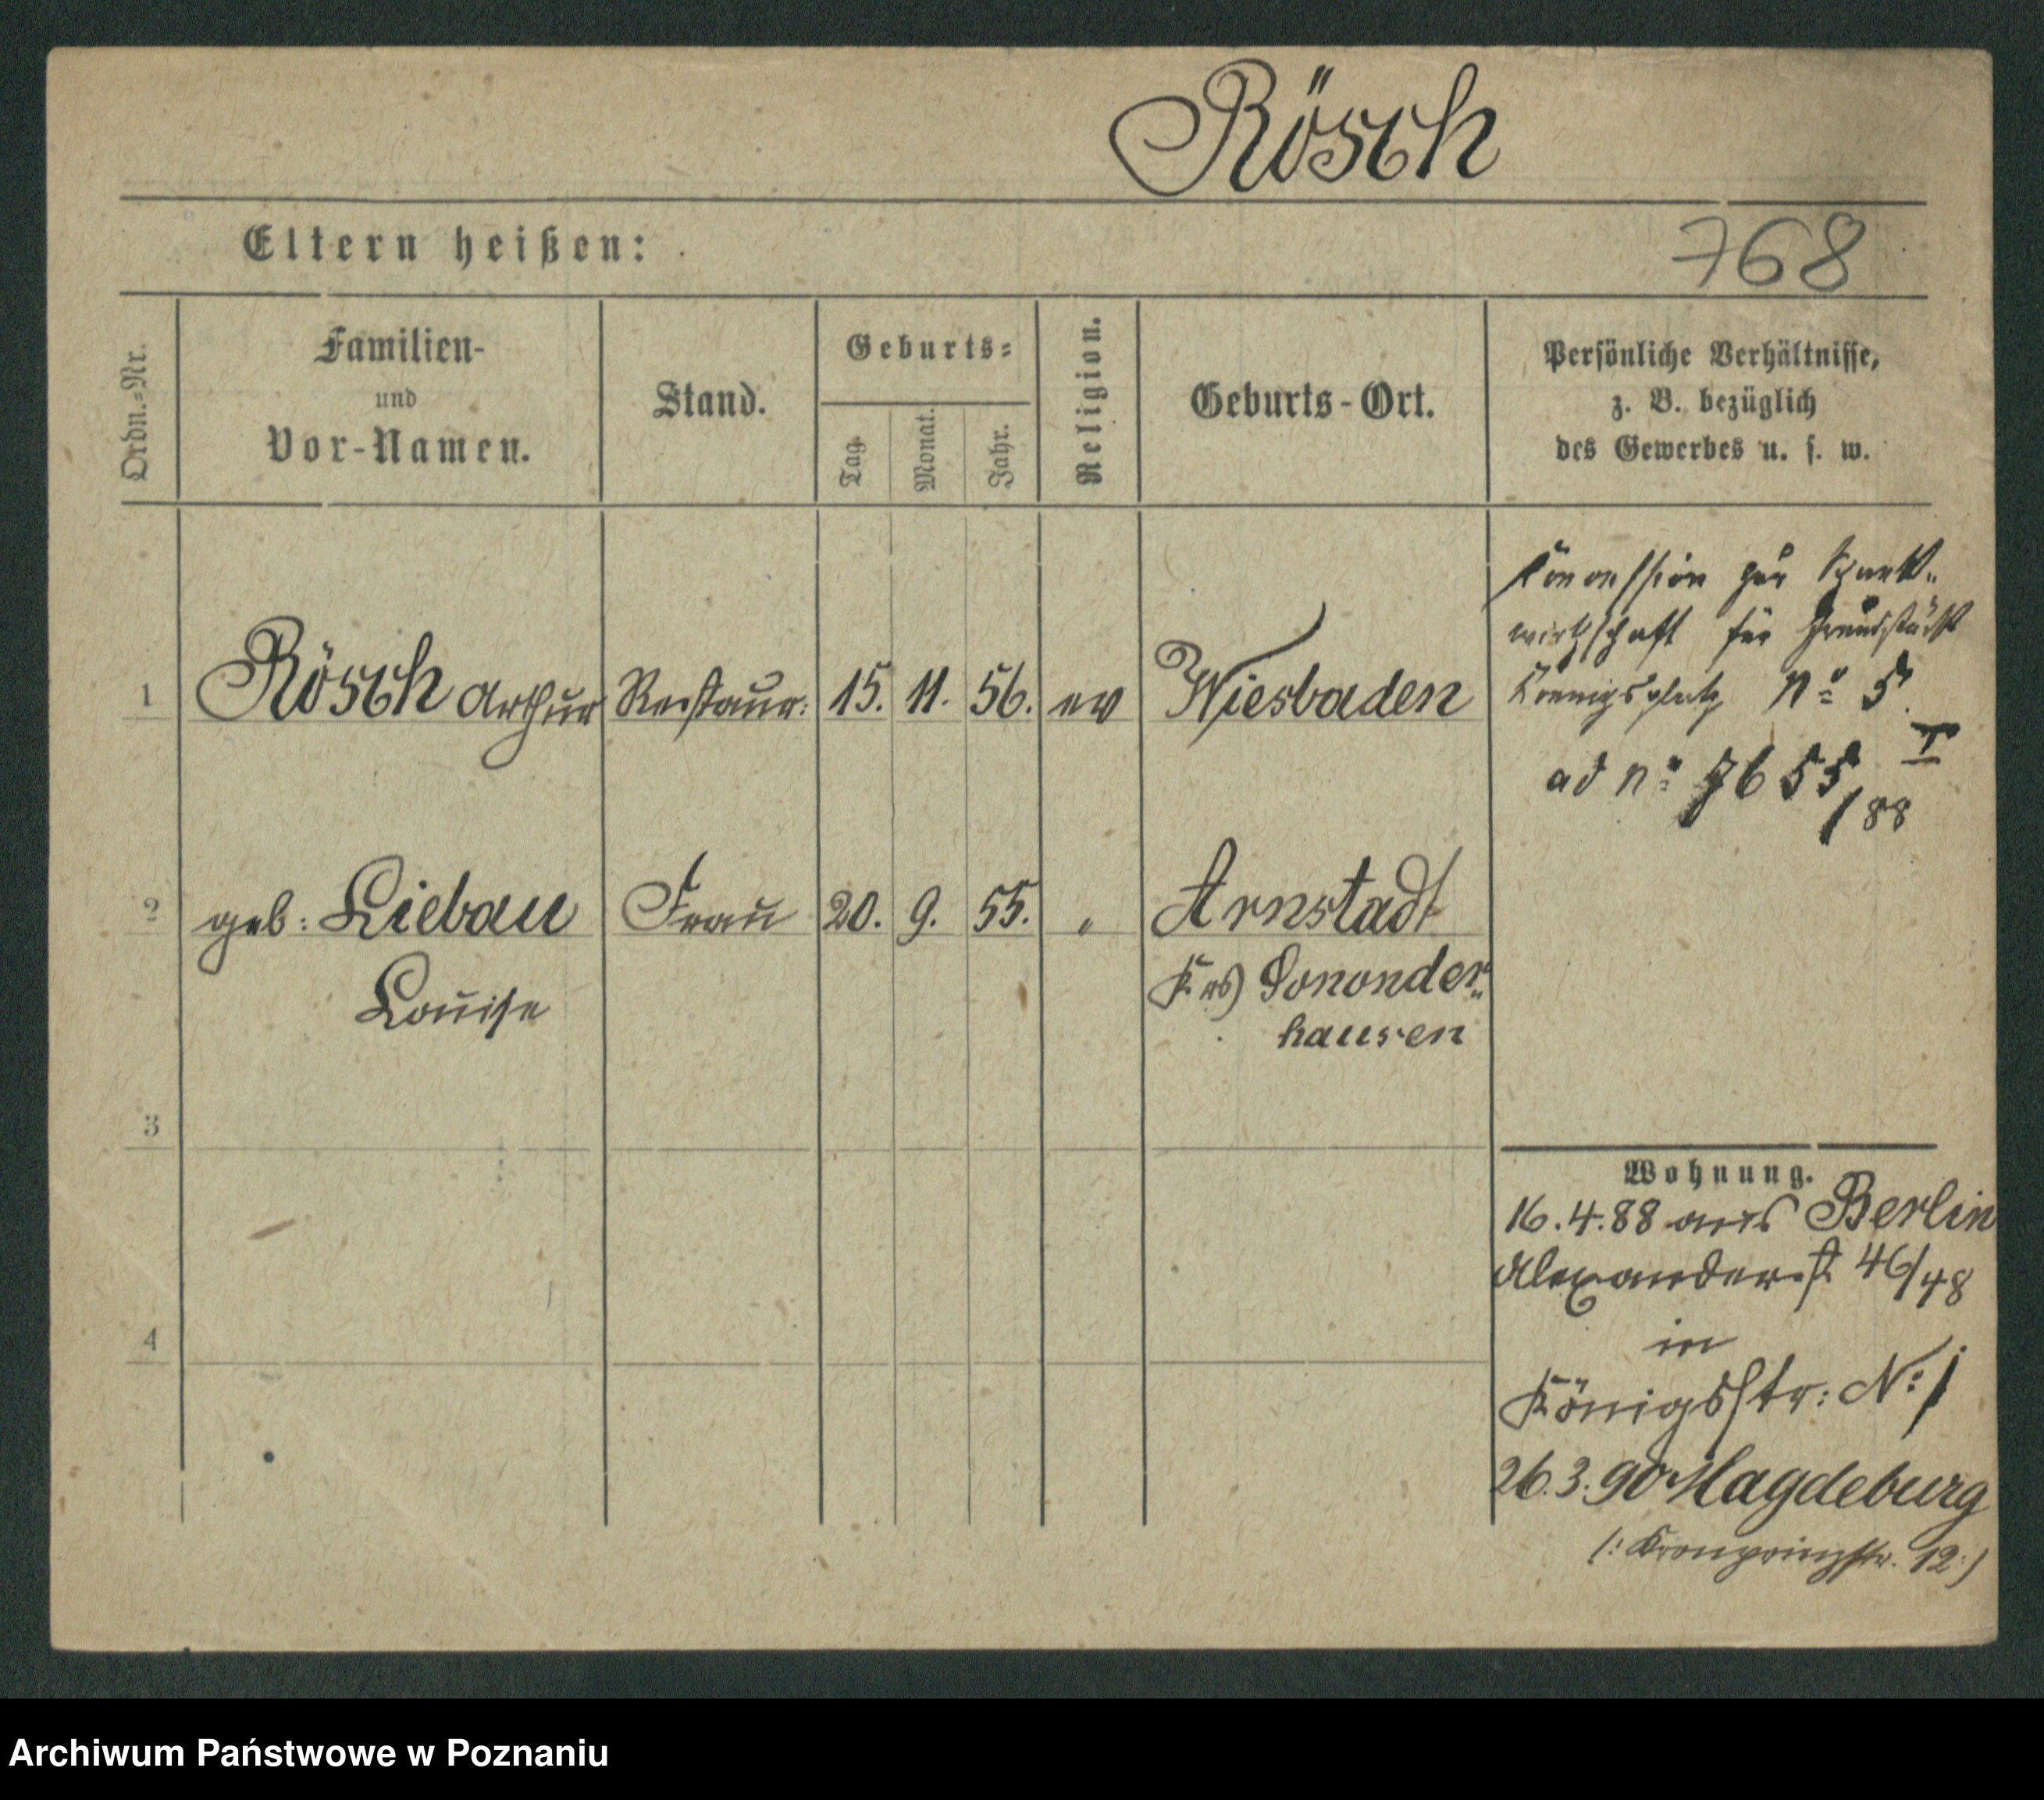 Rösch
Eltern heißen:
768
Ordn.-Nr.
Familien-
und
Vor-Namen.
Stand.
Geburts-
Tag.
Monat.
Jahr.
Religion.
Geburts-Ort.
Persönliche Verhältnisse,
z. B. bezüglich
des Gewerbes u. s. w.
1 Rösch Arthur Restaur: 15. 11. 56. ev Wiesbaden
zur Schank-
wirthschaft für Grundstück
Koenigsplatz No 5.
ad No 7655/88 I
2 geb: Liebau Frau 20. 9. 55. " Arnstadt
Louise
Sononder-
hausen
3
4
Wohnung.
16.4.88 aus Berlin
Alexanderst 46/48
in
Königsstr: No 1
26.3.90 Magdeburg
(: Kronprinzstr. 12:)
Archiwum Państwowe w Poznaniu